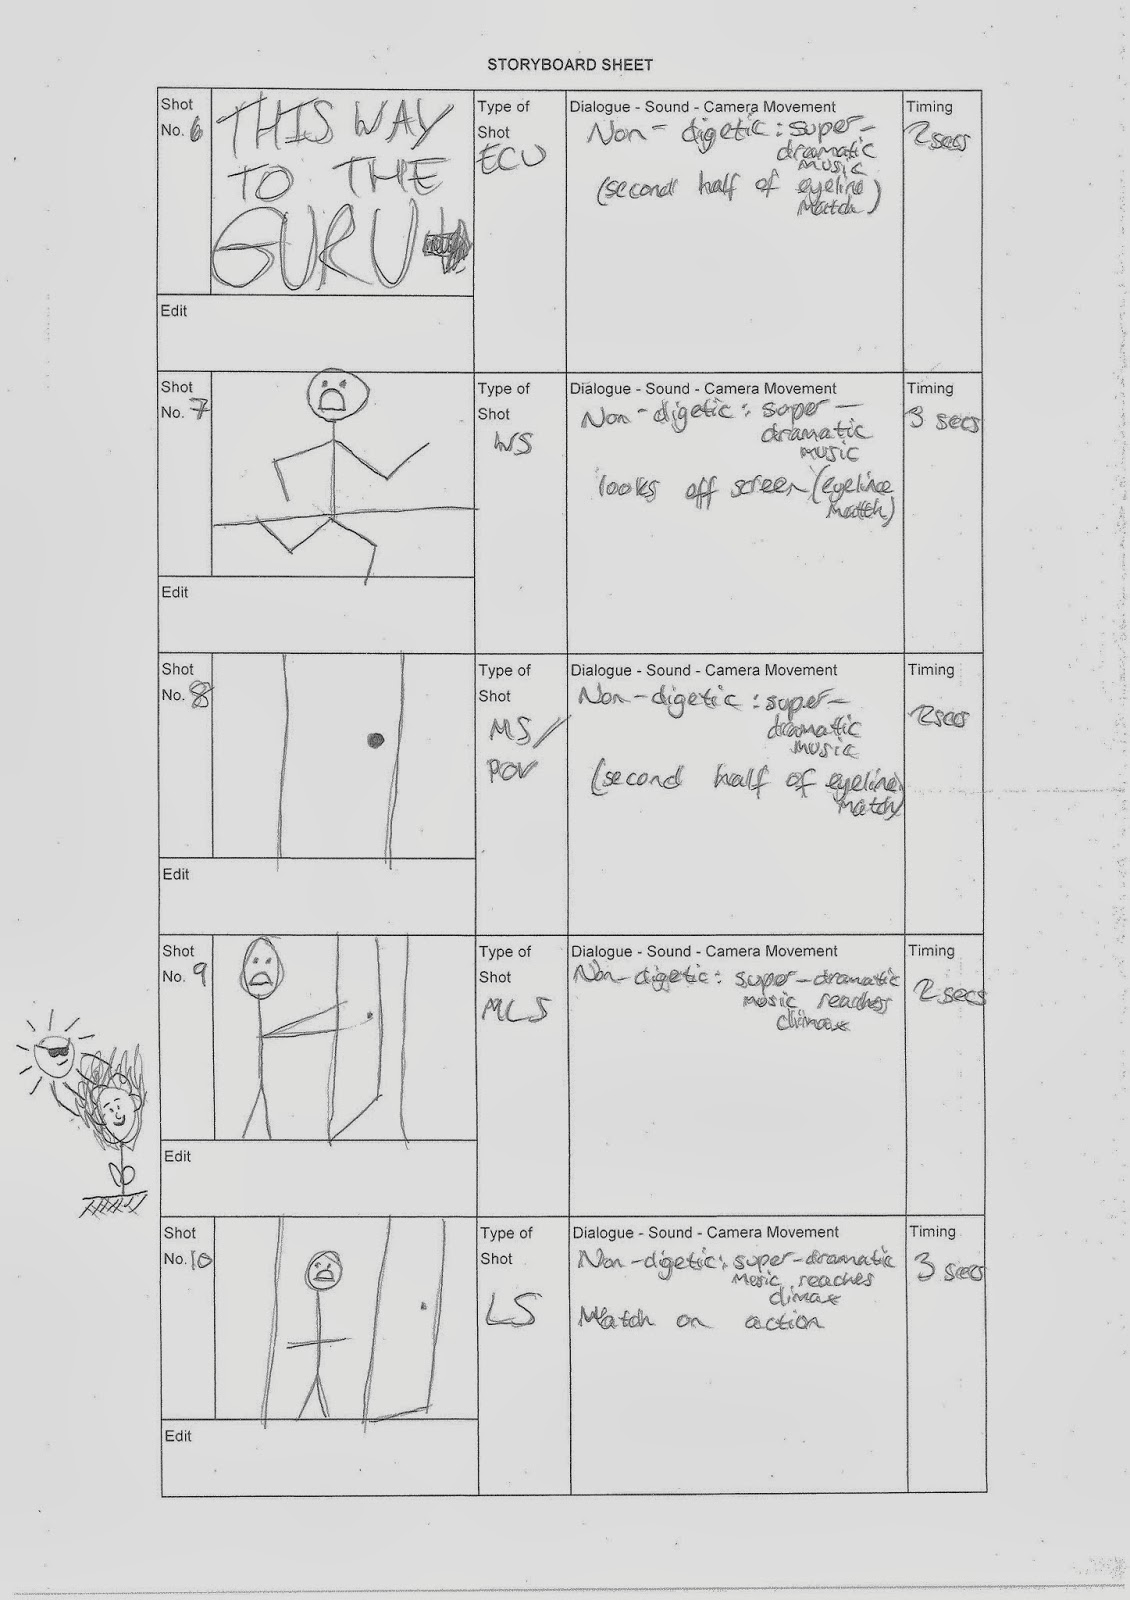 STORYBOARD SHEET
Shot
No. 6
THIS WAY
TO THE
GURU
Type of
Shot
ECU
Dialogue - Sound - Camera Movement
Non-digetic : super-
dramatic
music
(second half of eyeline
match)
Timing
2 secs
Edit
Shot
No. 7
Type of
Shot
WS
Dialogue - Sound - Camera Movement
Non-digetic : super-
dramatic
music
looks off screen (eyeline
match)
Timing
3 secs
Edit
Shot
No. 8
Type of
Shot
MS/
POV
Dialogue - Sound - Camera Movement
Non-digetic : super-
dramatic
music
(second half of eyeline
match)
Timing
2secs
Edit
Shot
No. 9
Type of
Shot
MLS
Dialogue - Sound - Camera Movement
Non-digetic : super-dramatic
music reaches
climax
Timing
2 secs
Edit
Shot
No. 10
Type of
Shot
LS
Dialogue - Sound - Camera Movement
Non-digetic : super-dramatic
music reaches
climax
Match on action
Timing
3 secs
Edit